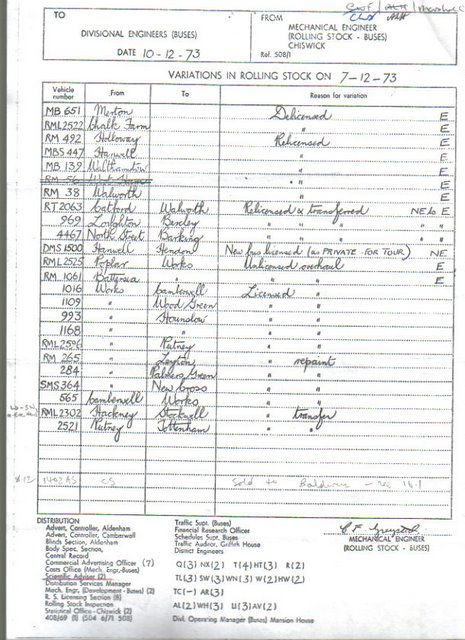 TO
DIVISIONAL ENGINEERS (BUSES)
DATE 10-12-73
FROM
MECHANICAL ENGINEER
(ROLLING STOCK - BUSES)
CHISWICK
Ref. 508/1
VARIATIONS IN ROLLING STOCK ON 7-12-73
Vehicle number From To Reason for variation
MB 651 Merton Delicensed E
RML2522 Chalk Farm " E
RM 492 Holloway Relicensed E
MBS 447 Hanwell " E
MB 139 Walthamstow " E
RM 56 West " E
RM 38 Walworth " E
RT 2063 Catford Walworth Relicensed & transferred NE to E
969 Loughton Bexley " " " " "
4467 North Street Barking " " " " "
DMS 1500 Hanwell Hendon New bus licensed (as PRIVATE FOR TOUR) NE
RML2525 Poplar Works Unlicensed overhaul E
RM 1061 Battersea " " " E
1016 Works Camberwell Licensed "
1109 " Wood Green " "
993 " Hounslow " "
1168 " " " "
RML2596 " Putney " "
RM 265 " Leyton " repaint
284 " Palmers Green " "
SMS 364 " New Cross " "
565 Camberwell Works " "
RML2302 Hackney Stockwell " transfer
2521 Putney Tottenham " "
Sold to Baldwin
DISTRIBUTION
Advert. Controller, Aldenham
Advert. Controller, Camberwell
Blinds Section, Aldenham
Body Spec. Section,
Central Record
Commercial Advertising Officer (7)
Costs Office (Mech. Engr.-Buses)
Scientific Adviser (2)
Distribution Services Manager
Mech. Engr. (Development - Buses) (2)
R. S. Licensing Section (8)
Rolling Stock Inspection
Statistical Office - Chiswick (2)
408/69 (1) (504 6/71 508)
Traffic Supt. (Buses)
Financial Research Officer
Schedules Supt. Buses
Traffic Auditor, Griffith House
District Engineers
Q(3) NX(2) T(4) HT(3) R(2)
TL(3) SW(3) WN(3) W(2) HW(2)
TC(-) AR(3)
AL(2) WH(3) U(3) AV(2)
Divl. Operating Manager (Buses) Mansion House
MECHANICAL ENGINEER
(ROLLING STOCK - BUSES)